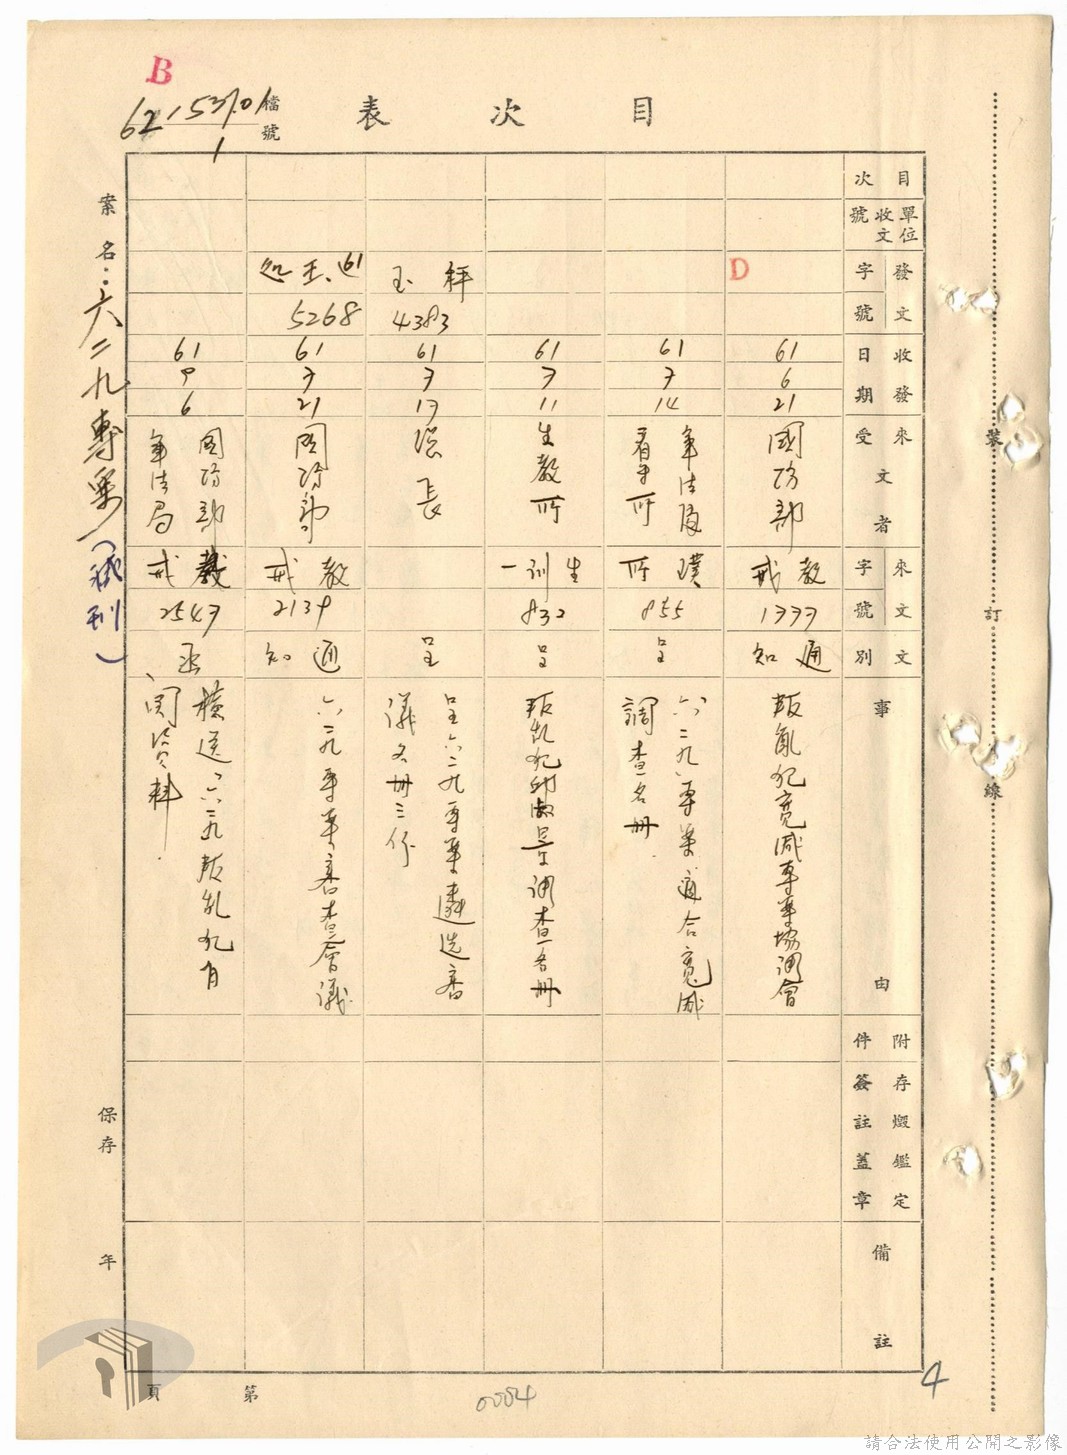 B
檔號
62 1537.01
1
目次表
案名：六二九專案（減刑）
保存 年
目次
單位收文號
發文字號
收發日期
來文受文者
來文字號
文別
事由
附件
存燬鑑定簽註蓋章
備註
D
61 6 21
國防部
教戒
1777
通知
叛亂犯寬減專案協調會
61 7 14
軍法處看守所
855
呈
六二九專案適合寬減調查名冊
61 7 11
生教所
生訓一
832
呈
4383
61 7 17
張
呈
呈六二九專案遴選審議名冊三份
61
5268
61 7 21
國防部
教戒
2139
通知
六二九專案審查會議
61
6
國防部軍法局
教戒
2547
函
檢送六二九叛亂犯有關資料
裝
訂
線
第 頁
0004
4
請合法使用公開之影像